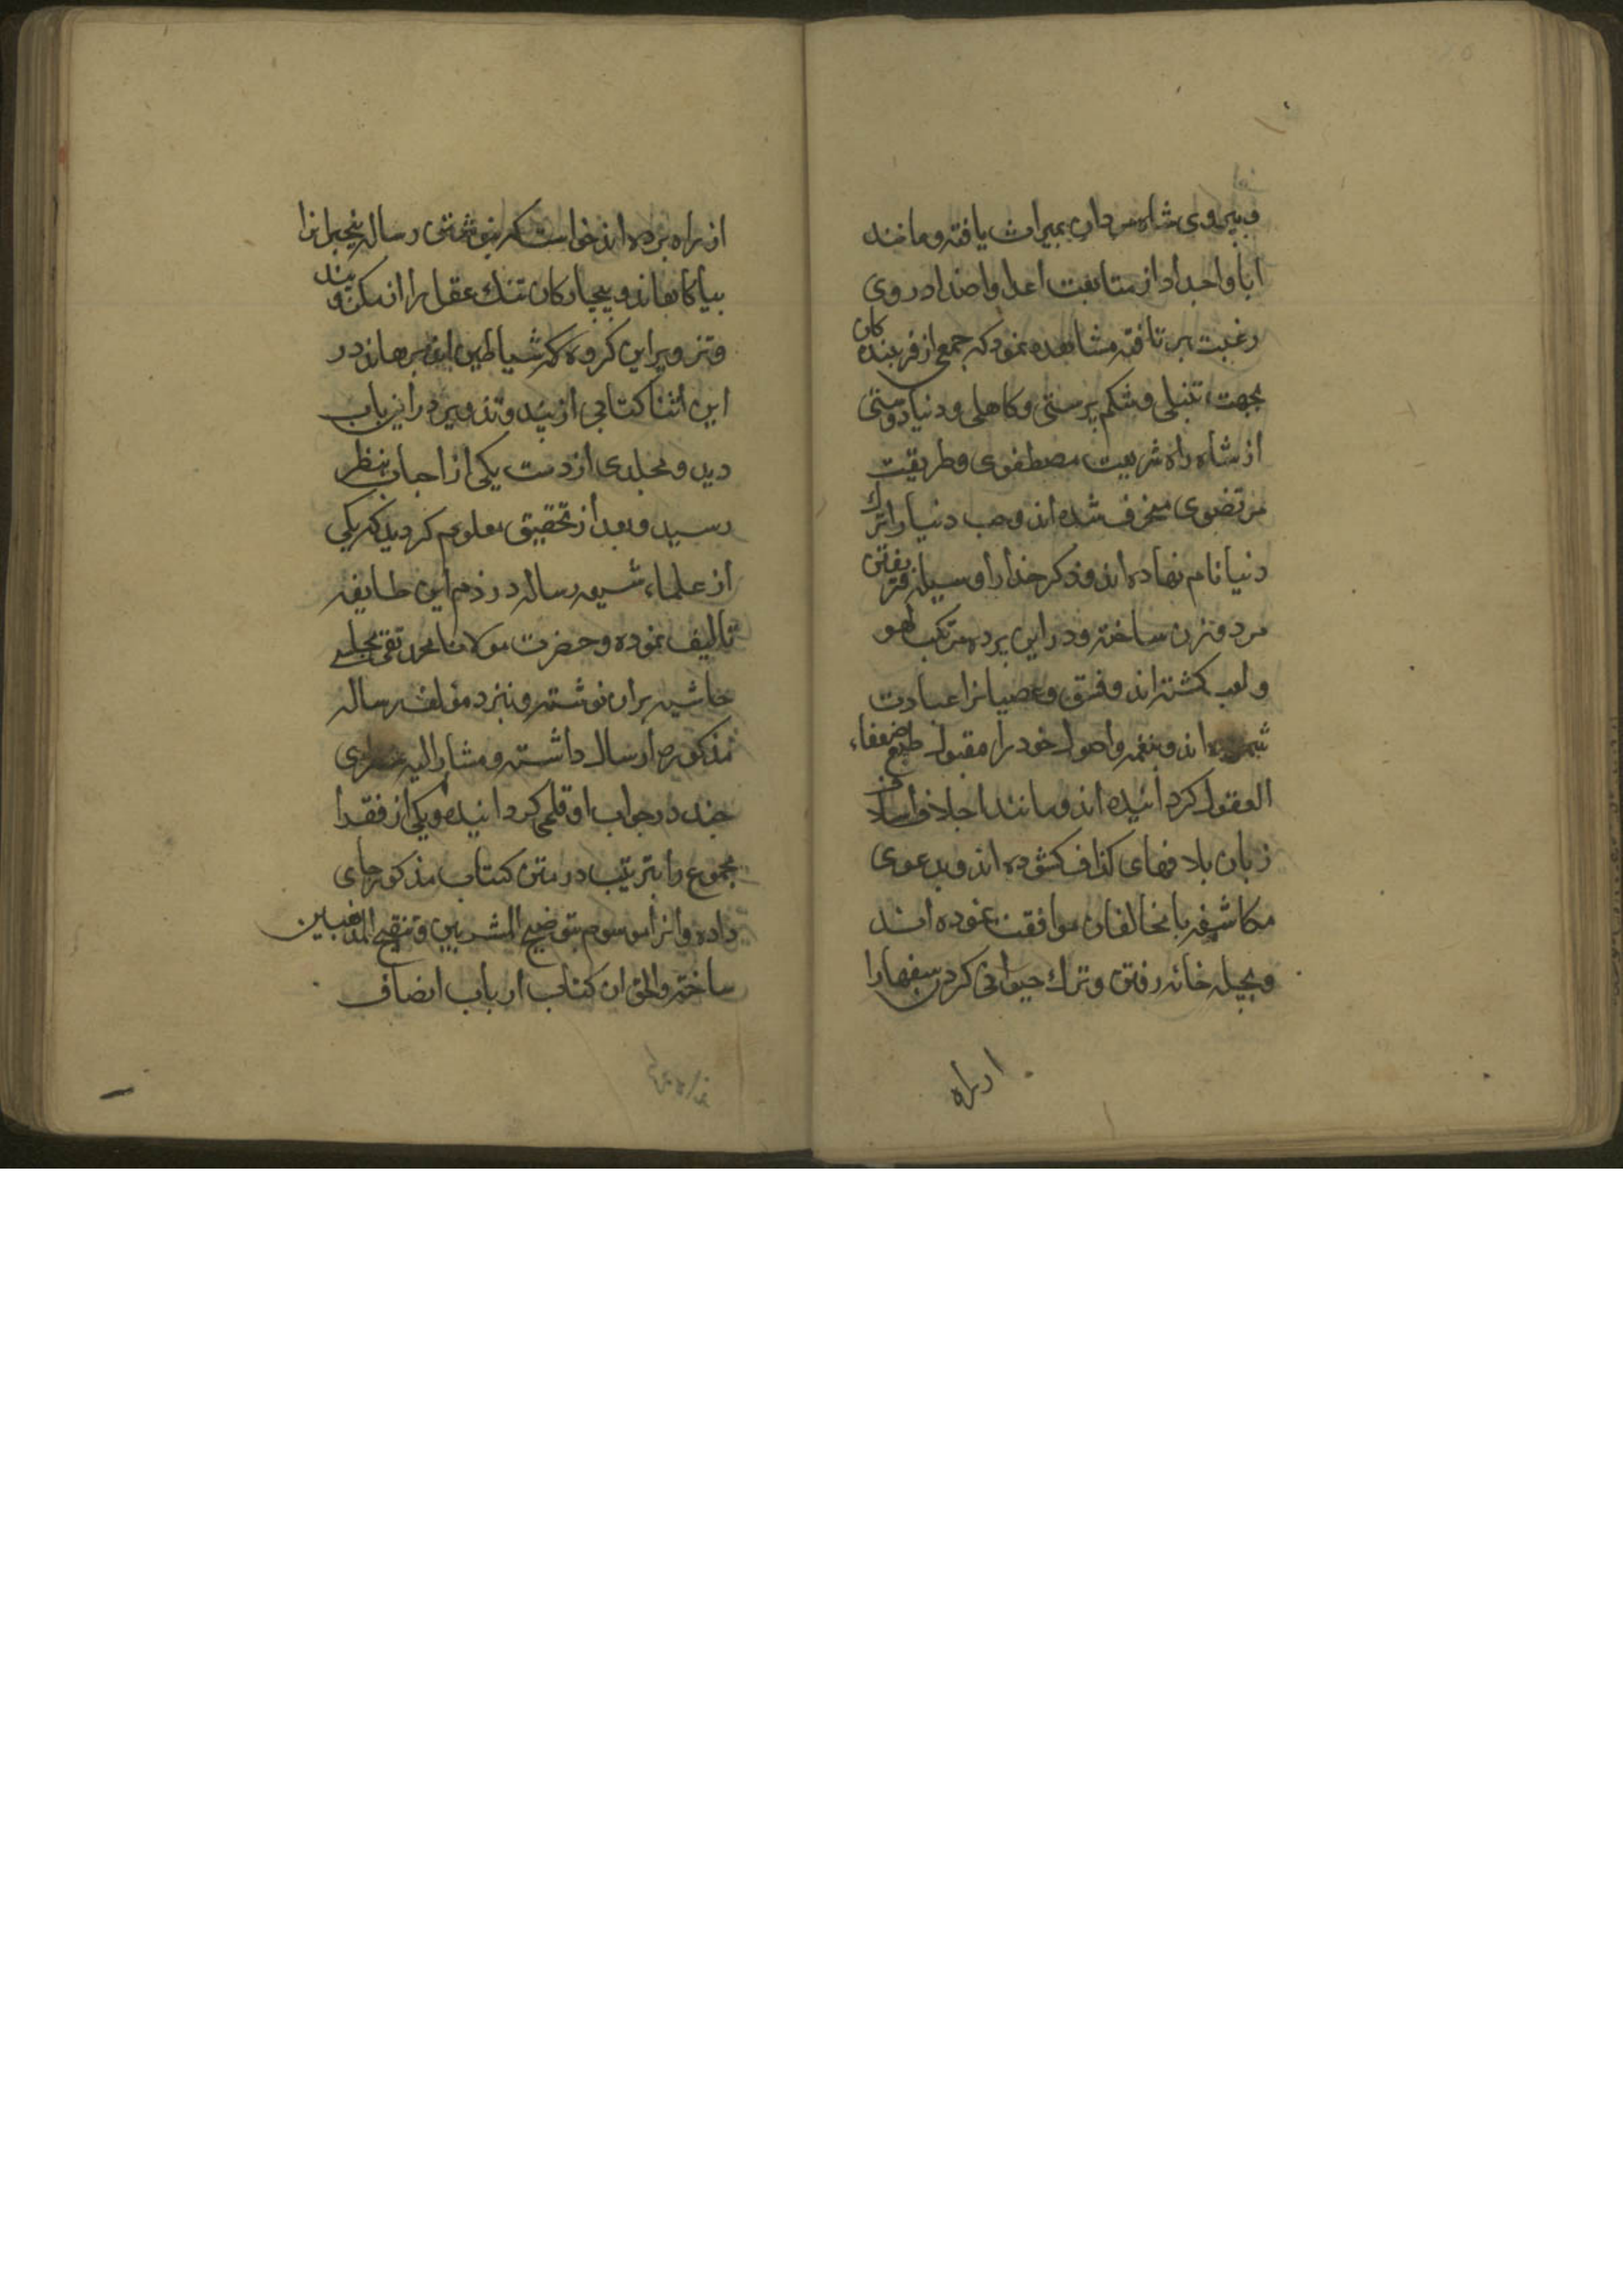 و پیروی شاه مردان بمیراث یافته و مانند
ابا و اجداد از متابعت اعدا و اضداد روی
رغبت بر تافته مشاهده نمود که جمعی از فریبنده کان
بجهت تنبلی و شکم پرستی و کاهلی و دنیا دوستی
از شاه راه شریعت مصطفوی و طریقت
مرتضوی منحرف شده اند و حب دنیا را ترک
دنیا نام نهاده اند و ذکر خدا را وسیله فریفتن
مرد و زن ساخته و در این پرده مرتکب لهو
و لعب کشته اند و فسق و عصیانرا عبادت
شمرده اند و بنغمه و اصول خود را مقبول طبع ضعفاء
العقول کردانیده اند و مانند اجلاف
زبان بلافهای کذاف کشوده اند و بدعوی
مکاشفه با مخالفان موافقت نموده اند
و بچیله خانه رفتن و ترک حیوانی کردن سفهارا
از راه
از راه برده اند خواست که بنوشتن رساله بیخبرانرا
بیاکاهاند و بیچارکان تنک عقل را از مکر و
و تزویر این کروه که شیاطین انس برهاند در
این اثنا کتابی از پند و تزویر در این باب
دید و مجلدی از دست یکی از احباب بنظر
رسید و بعد از تحقیق معلوم کردید که یکی
از علماء شیعه رساله در ذم این طایفه
تالیف نموده و حضرت مولانا محمد تقی مجلسی
حاشیه بران نوشته و بنزد مؤلف رساله
مذکوره ارسال داشته و مشار الیه سطری
چند در جواب او قلمی کردانیده و یکی از فقرا
مجموع را بترتیب در متن کتاب مذکور جای
داده و انرا موسوم بتوضیح المشربین و تنقیح المذهبین
ساخته و الحق ان کتاب ارباب انصاف